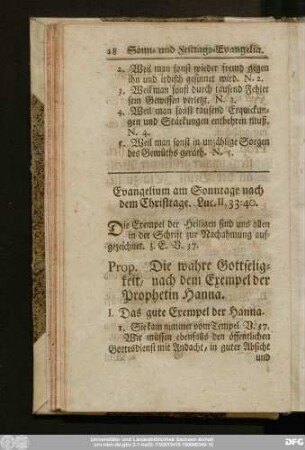 28 Sonn- und Festtags-Evangelia.
2. Weil man sonst wieder fremd gegen
ihn und irdisch gesinnet wird. N. 2.
3. Weil man sonst durch tausend Fehler
sein Gewissen verletzt. N. 3.
4. Weil man sonst tausend Erquickun-
gen und Stärkungen entbehren muß.
N. 4.
5. Weil man sonst in unzählige Sorgen
des Gemüths geräth. N. 5.
Evangelium am Sonntage nach
dem Christtage. Luc. II, 33-40.
Die Exempel der Heiligen sind uns allen
in der Schrift zur Nachahmung auf-
gezeichnet. z. E. V. 37.
Prop. Die wahre Gottselig-
keit, nach dem Exempel der
Prophetin Hanna.
I. Das gute Exempel der Hanna.
1. Sie kam nimmer vom Tempel. V. 37.
Wir müssen ebenfalls den öffentlichen
Gottesdienst mit Andacht, in guter Absicht
und
Universitäts- und Landesbibliothek Sachsen-Anhalt
DFG